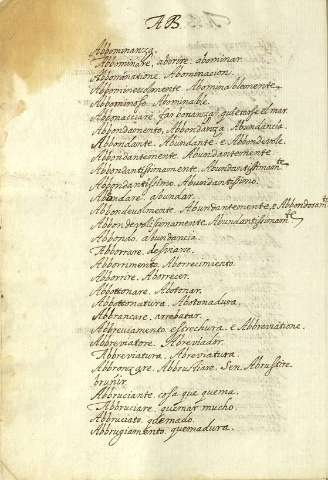 AB
Abbominanza.
Abbominare, aborire abominar.
Abbominatione. Abominacion.
Abbomineuolmente Abominablemente.
Abbominoso. Abominable.
Abbonacciare far bonanza, quietarse el mar.
Abbondamento, Abbondanza Abundancia.
Abbondante. Abundante. e Abbondevole.
Abbondantemente Abundantemente
Abbondantissimamente. Abundantissimamte
Abbondantissimo. Abundantissimo.
Abbondare. abundar.
Abbondeuolmente. Abundantemente. e Abbondosamte
Abbondeuolissimamente. Abundantissimamte
Abbondo. abundancia.
Abborrare.
Abborrimento. Aborrecimiento.
Abborrire. Aborrecer.
Abbottonare. Abotonar.
Abbottonatura. Abotonadura.
Abbrancare. arrebatar.
Abbreviamento. e Abbreviatione.
Abbreviatore. Abreviador.
Abbreviatura. Abreviatura.
Abbronzare. Abbrustiare. Sen.
bruñir.
Abbruciante cosa que quema.
Abbruciare. quemar mucho.
Abbruciato. quemado.
Abbrugiamento. quemadura.